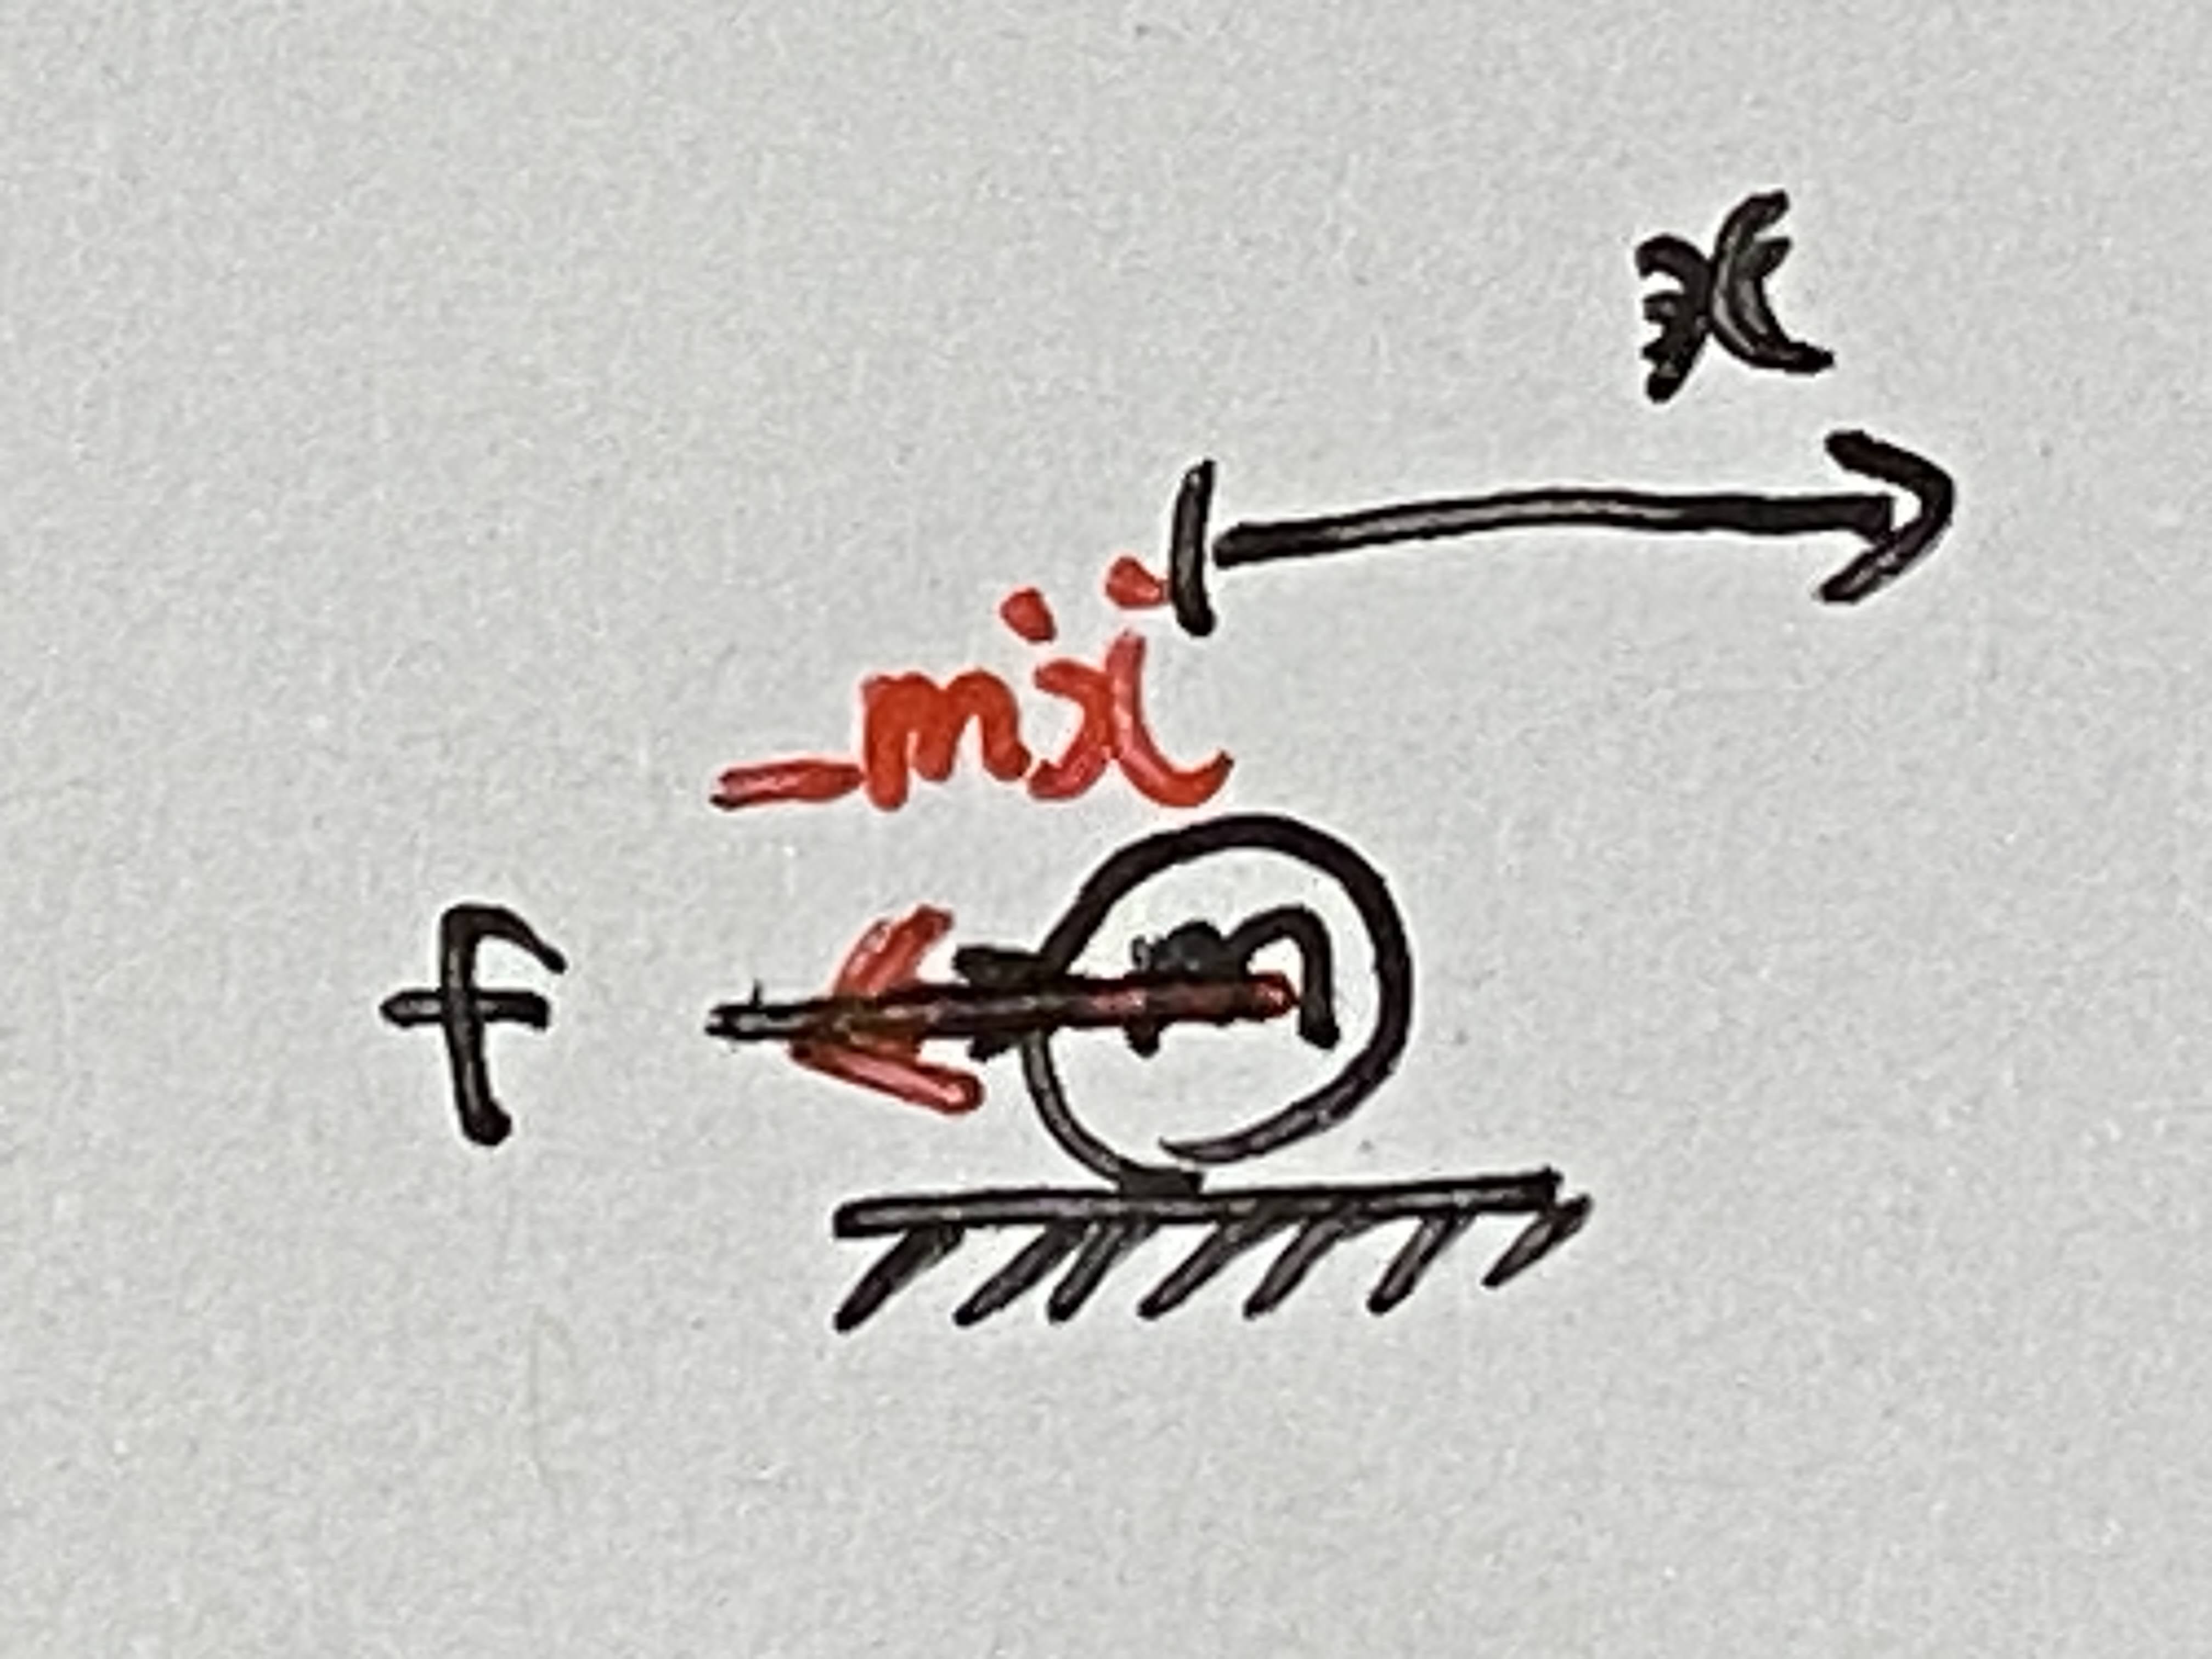 x
-mẍ
f
m